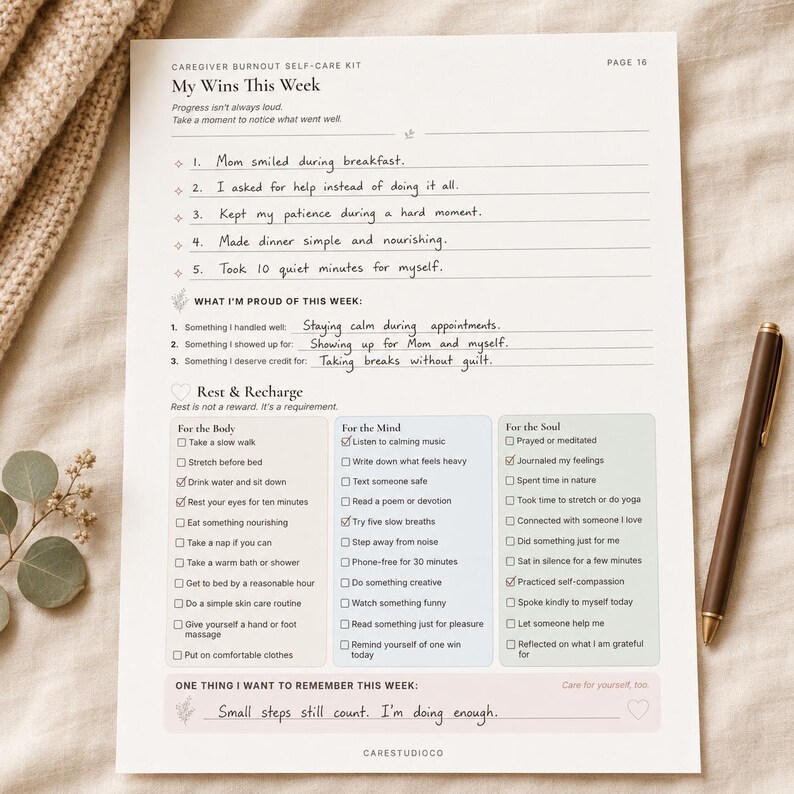 CAREGIVER BURNOUT SELF-CARE KIT
PAGE 16
My Wins This Week
Progress isn't always loud.
Take a moment to notice what went well.
1. Mom smiled during breakfast.
2. I asked for help instead of doing it all.
3. Kept my patience during a hard moment.
4. Made dinner simple and nourishing.
5. Took 10 quiet minutes for myself.
WHAT I'M PROUD OF THIS WEEK:
1. Something I handled well: Staying calm during appointments.
2. Something I showed up for: Showing up for Mom and myself.
3. Something I deserve credit for: Taking breaks without guilt.
Rest & Recharge
Rest is not a reward. It's a requirement.
For the Body
Take a slow walk
Stretch before bed
Drink water and sit down
Rest your eyes for ten minutes
Eat something nourishing
Take a nap if you can
Take a warm bath or shower
Get to bed by a reasonable hour
Do a simple skin care routine
Give yourself a hand or foot
massage
Put on comfortable clothes
For the Mind
Listen to calming music
Write down what feels heavy
Text someone safe
Read a poem or devotion
Try five slow breaths
Step away from noise
Phone-free for 30 minutes
Do something creative
Watch something funny
Read something just for pleasure
Remind yourself of one win
today
For the Soul
Prayed or meditated
Journaled my feelings
Spent time in nature
Took time to stretch or do yoga
Connected with someone I love
Did something just for me
Sat in silence for a few minutes
Practiced self-compassion
Spoke kindly to myself today
Let someone help me
Reflected on what I am grateful
for
ONE THING I WANT TO REMEMBER THIS WEEK:
Care for yourself, too.
Small steps still count. I'm doing enough.
CARESTUDIOCO